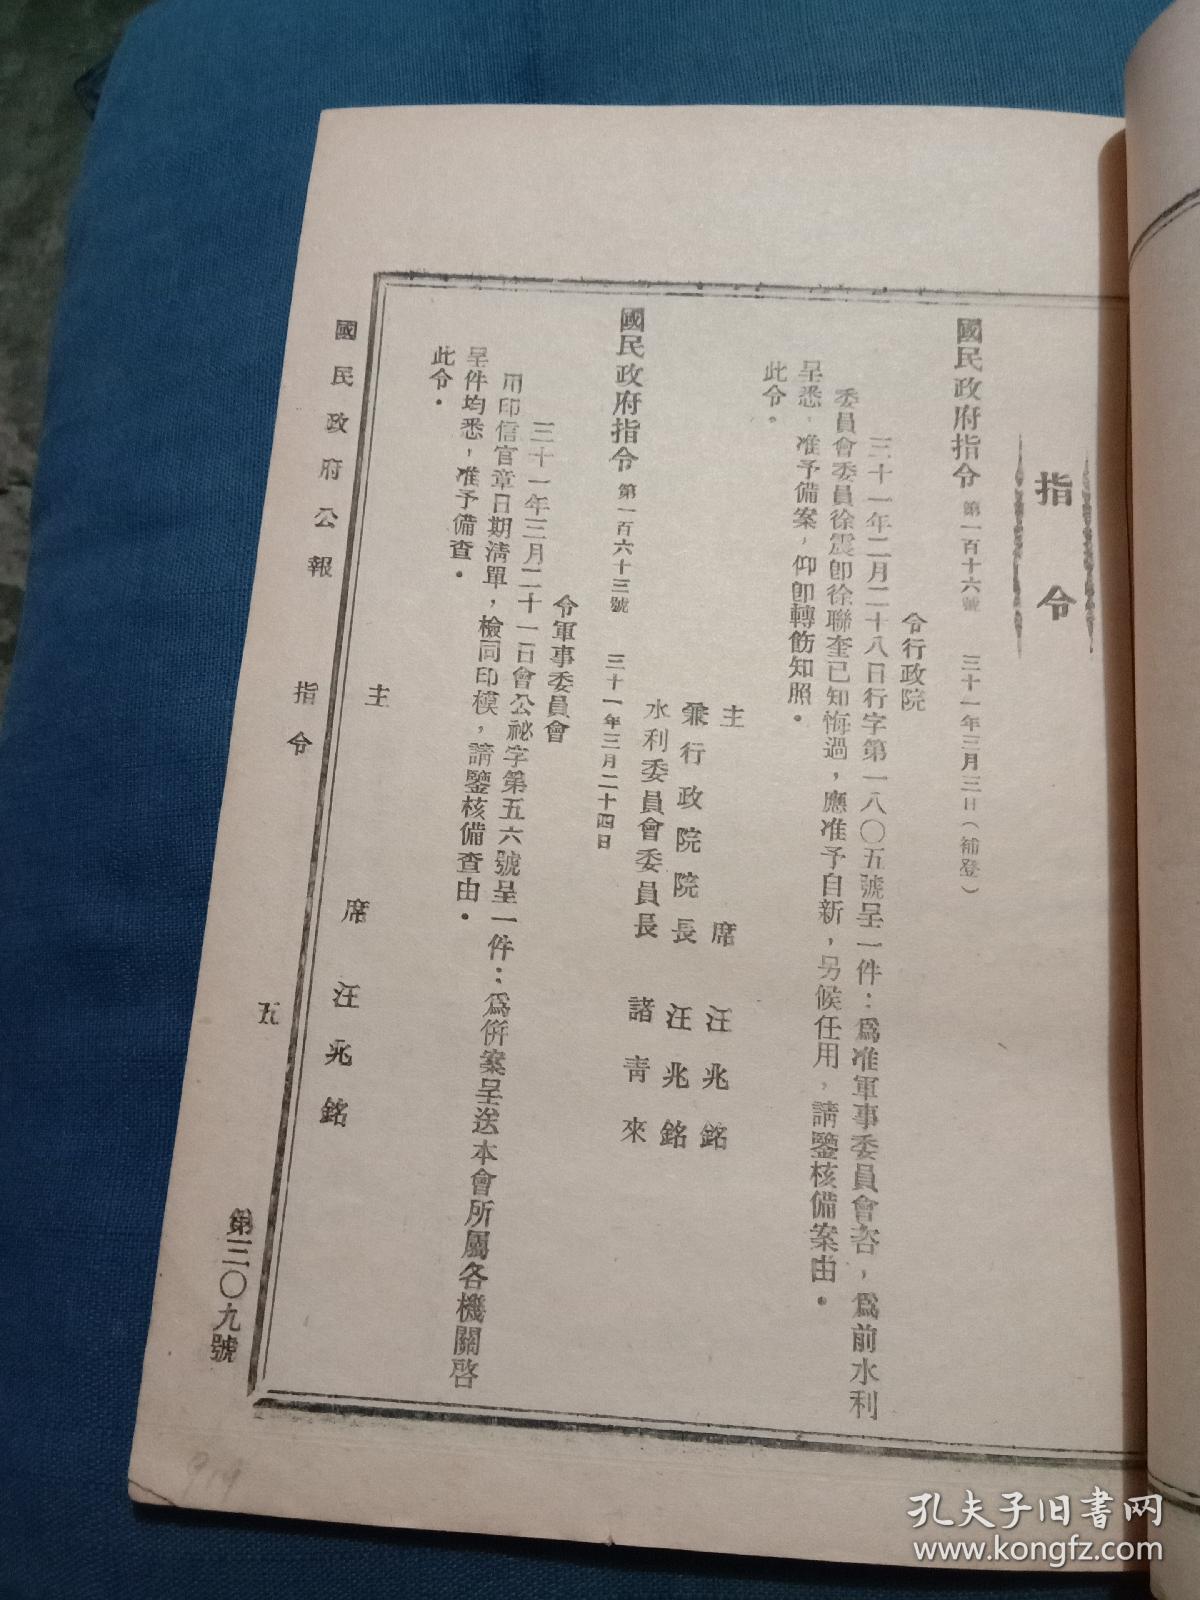 指令
國民政府指令 第一百十六號 三十一年三月三日（補登）
令行政院
三十一年二月二十八日行字第一八〇五號呈一件：為准軍事委員會咨，為前水利
委員會委員徐震卽徐聯奎已知悔過，應准予自新，另候任用，請鑒核備案由。
呈悉，准予備案，仰卽轉飭知照。
此令。
主席 汪兆銘
兼行政院院長 汪兆銘
水利委員會委員長 諸青來
國民政府指令 第一百六十三號 三十一年三月二十四日
令軍事委員會
三十一年三月二十一日會公祕字第五六號呈一件：為倂案呈送本會所屬各機關啓
用印信官章日期清單，檢同印模，請鑒核備查由。
呈件均悉，准予備查。
此令。
主席 汪兆銘
國民政府公報 指令 五 第三〇九號
919
孔夫子旧书网
www.kongfz.com